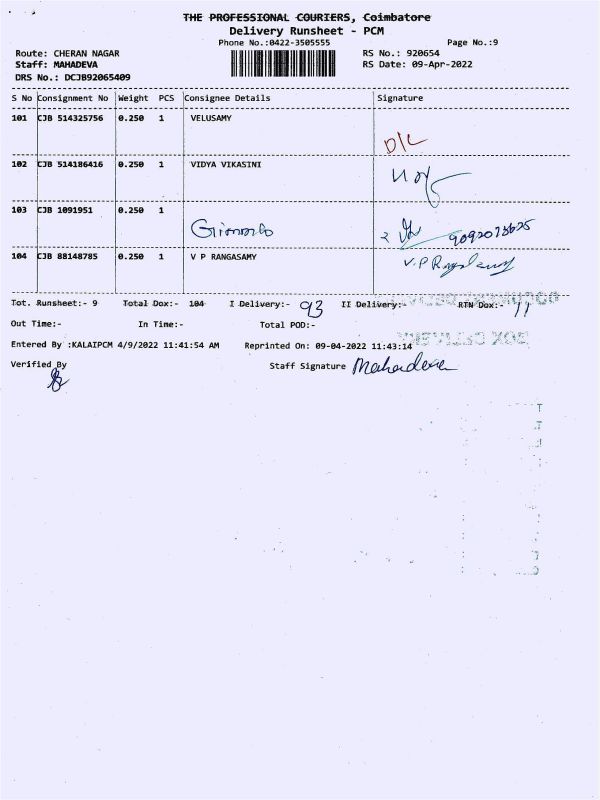 THE PROFESSIONAL COURIERS, Coimbatore
Delivery Runsheet - PCM
Phone No.:0422-3505555 Page No.:9
Route: CHERAN NAGAR RS No.: 920654
Staff: MAHADEVA RS Date: 09-Apr-2022
DRS No.: DCJB92065409
S No Consignment No Weight PCS Consignee Details Signature
101 CJB 514325756 0.250 1 VELUSAMY
D/L
102 CJB 514186416 0.250 1 VIDYA VIKASINI
103 CJB 1091951 0.250 1
104 CJB 88148785 0.250 1 V P RANGASAMY
V.P Rangasamy
Tot. Runsheet:- 9 Total Dox:- 104 I Delivery:- 93 II Delivery:- RTN Dox:- 11
Out Time:- In Time:- Total POD:-
Entered By :KALAIPCM 4/9/2022 11:41:54 AM Reprinted On: 09-04-2022 11:43:14
Verified By Staff Signature Mahadeva